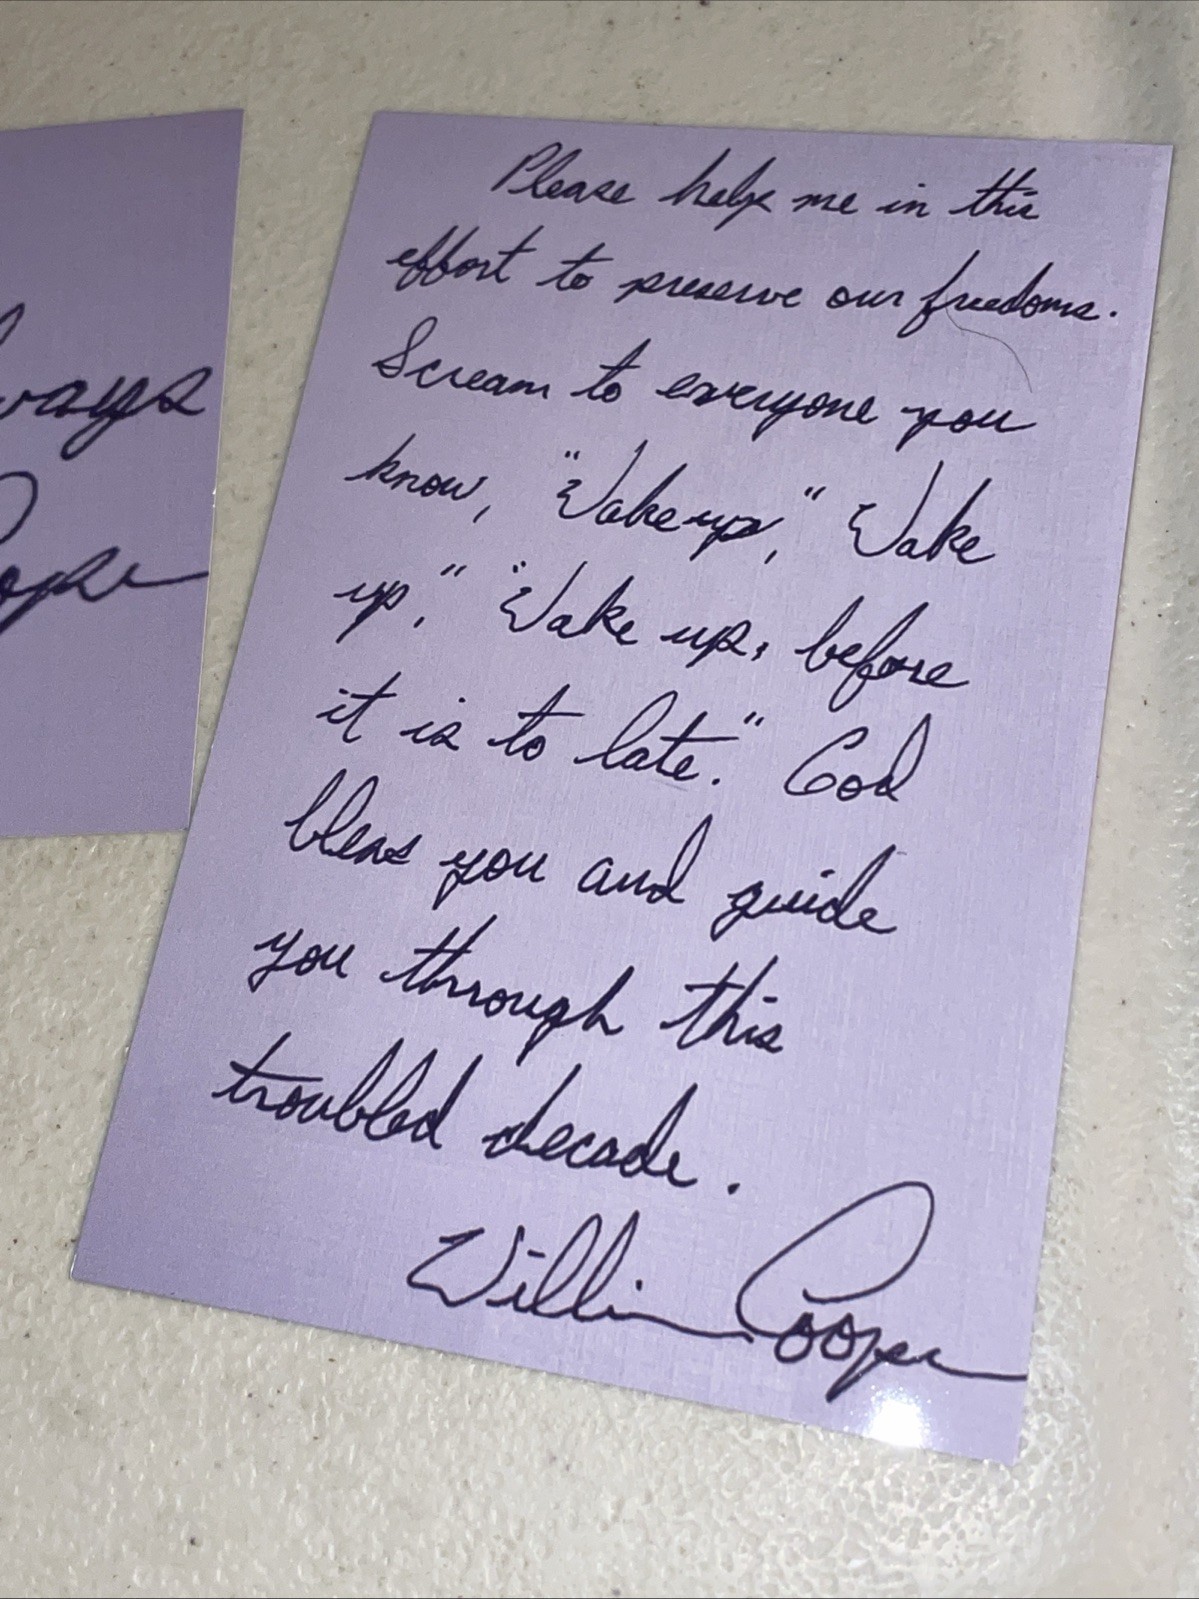 ways
Cooper
Please help me in this
effort to preserve our freedoms.
Scream to everyone you
know, "Wake up," Wake
up," "Wake up, before
it is to late." God
bless you and guide
you through this
troubled decade.
William Cooper